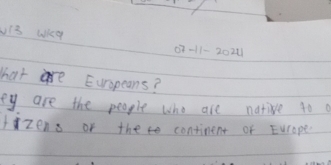 07-11-2024
hat are Europeans?
ey are the people who are native to o
tizens of the continent of Europe.